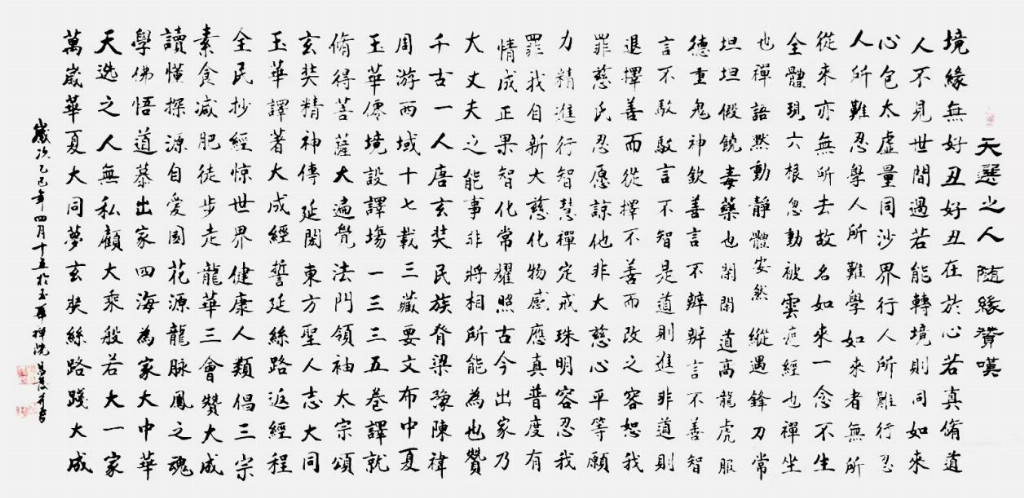 天選之人 隨緣贊嘆
境緣無好丑好丑在於心若真脩道
人不見世間過若能轉境則同如來
心包太虛量同沙界行人所難行忍
人所難忍學人所難學如來者無所
從來亦無所去故名如來一念不生
全體現六根忽動被雲遮經也禪坐
也禪語默動靜體安然縱遇鋒刀常
坦坦假饒毒藥也閑閑道高龍虎服
德重鬼神欽善言不辯辯言不善智
言不馭馭言不智是道則進非道則
退擇善而從擇不善而改之容恕我
罪慈氏忍愿諒他非大慈心平等願
力精進行智慧禪定戒珠明容忍我
罪我自新大慈化物感應真普度有
情成正果智化常耀照古今出家乃
大丈夫之能事非將相所能為也贊
千古一人唐玄奘民族脊梁豫陳禕
周游西域十七載三藏要文布中夏
玉華僊境設譯場一三三五卷譯就
脩得菩薩大遍覺法門領袖太宗頌
玄奘精神傳延閣東方聖人志大同
玉華譯著大成經誓延絲路返經程
全民抄經惊世界健康人類倡三宗
素食减肥徒步走龍華三會贊大成
讀懂探源自愛國花源龍脉鳳之魂
學佛悟道慕出家四海為家大中華
天选之人無私顧大乘般若大一家
萬歲華夏大同夢玄奘絲路踐大成
歲次乙巳年四月十五於玉華禪院